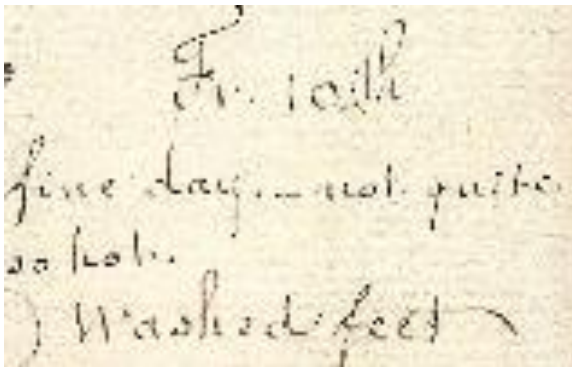 Fr. 10th
fine day. - not quite
so hot.
) Washed feet